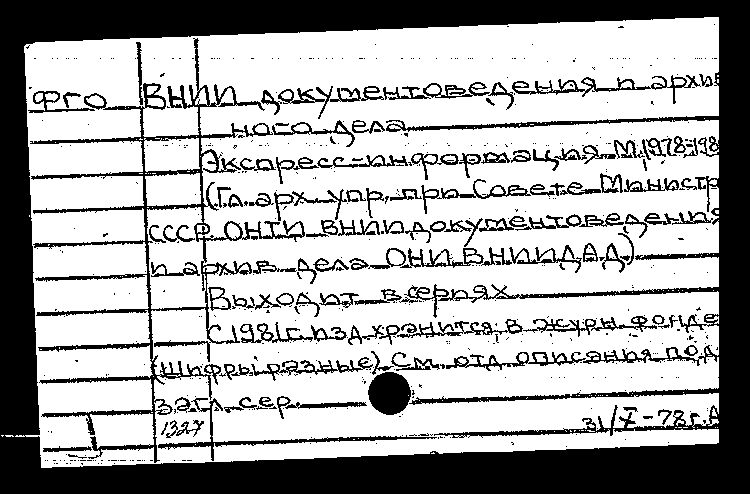 ФГО ВНИИ документоведения и архив
ного дела
Экспресс-информация М, 1978-198
(Гл. арх. упр. при Совете Министр
СССР ОНТИ ВНИИ документоведения
и архив. дела ОНИ ВНИИДАД)
Выходит в сериях
С 1981г. изд. хранится в журн. фонде
(Шифры разные) См. отд. описания под
загл. сер.
1327
31/X-78г. А